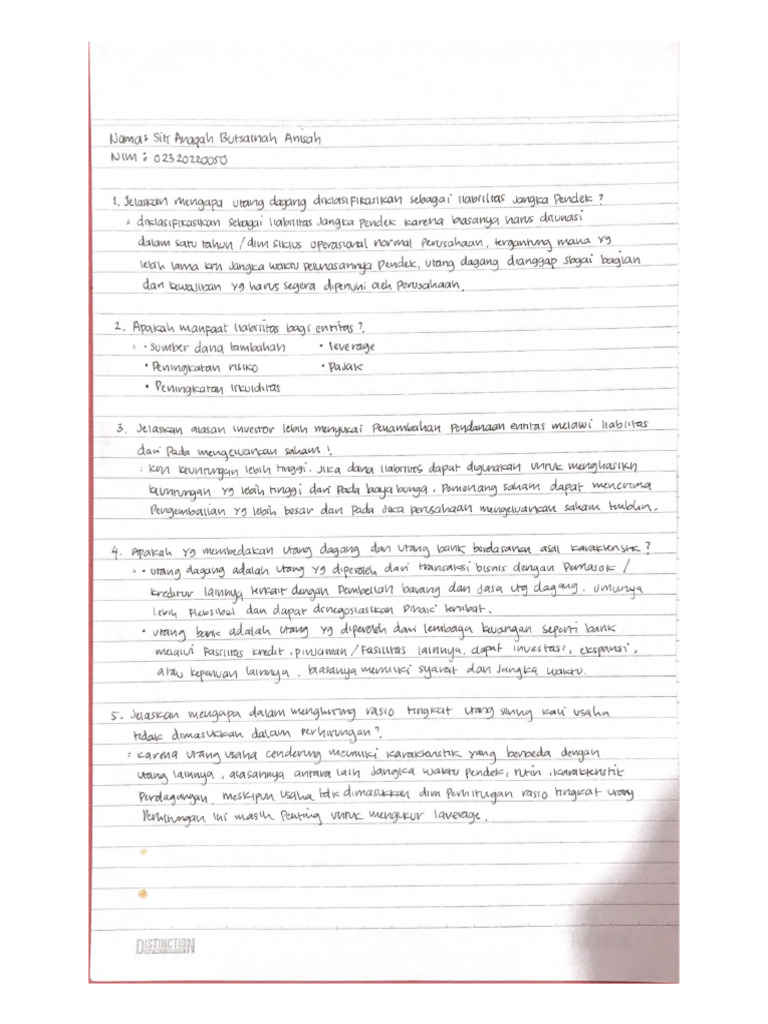 Nama: Siti Anaqah Butsainah Anisah
NIM : 02320220050
1. Jelaskan mengapa utang dagang diklasifikasikan sebagai liabilitas Jangka Pendek ?
: diklasifikasikan sebagai liabilitas Jangka Pendek karena biasanya harus dilunasi
dalam satu tahun / dlm siklus operasional normal Perusahaan, tergantung mana yg
lebih lama krn Jangka waktu pelunasannya Pendek, utang dagang dianggap sbgai bagian
dari kewajiban yg harus segera dipenuhi oleh Perusahaan.
2. Apakah manfaat liabilitas bagi entitas ?
: • Sumber dana tambahan • leverage
• Peningkatan risiko • Pajak
• Peningkatan likuiditas
3. Jelaskan alasan investor lebih menyukai Penambahan Pendanaan entitas melalui liabilitas
dari pada mengeluarkan saham !
: krn keuntungan lebih tinggi. Jika dana liabilitas dapat digunakan untuk menghasilkn
keuntungan yg lebih tinggi dari pada biaya bunga, Pemegang saham dapat menerima
Pengembalian yg lebih besar dari pada Jika perusahaan mengeluarkan saham tmbhn.
4. Apakah yg membedakan utang dagang dan utang bank berdasarkan asal karakteristik ?
: • utang dagang adalah utang yg diperoleh dari transaksi bisnis dengan Pemasok /
kreditur lainnya terkait dengan Pembelian barang dan Jasa utg dagang. umunya
lebih fleksibel dan dapat dinegosiasikan Pihak terlibat.
• utang bank adalah utang yg diperoleh dari lembaga keuangan seperti bank
melalui Fasilitas kredit, pinjaman / Fasilitas lainnya. dapat investasi, ekspansi,
atau keperluan lainnya. biasanya memiliki syarat dan Jangka waktu.
5. Jelaskan mengapa dalam menghitung rasio tingkat utang sering kali usaha
tidak dimasukkan dalam Perhitungan ?
: karena utang usaha cenderung memiliki karakteristik yang berbeda dengan
utang lainnya, alasannya antara lain Jangka waktu pendek, rutin, karakteristik
Perdagangan. meskipun usaha tdk dimasukkan dlm Perhitungan rasio tingkat utang
Perhitungan ini masih Penting untuk mengukur laverage.
DISTINCTION